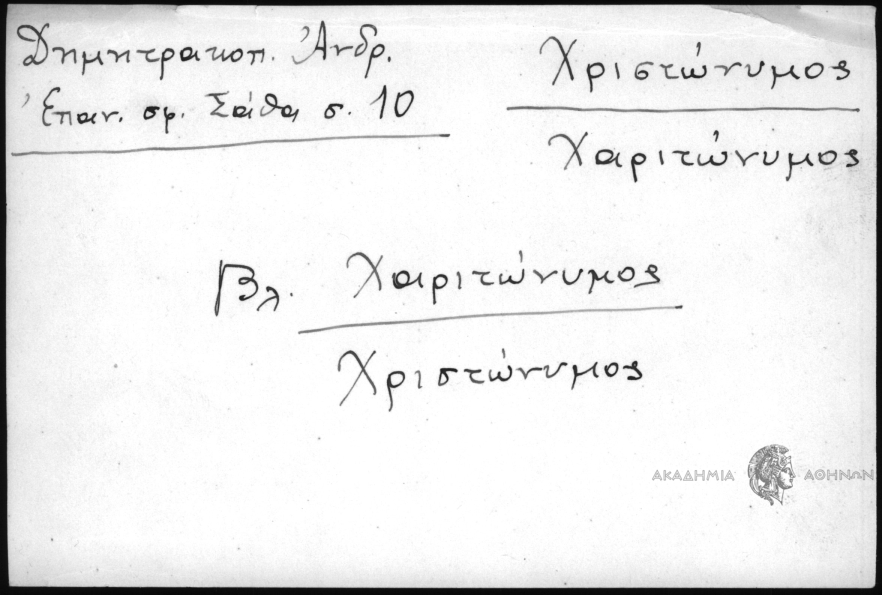 Δημητρακοπ. Ἀνδρ.
Ἐπαν. σφ. Σάθα σ. 10
Χριστώνυμος
Χαριτώνυμος
Βλ. Χαριτώνυμος
Χριστώνυμος
ΑΚΑΔΗΜΙΑ ΑΘΗΝΩΝ